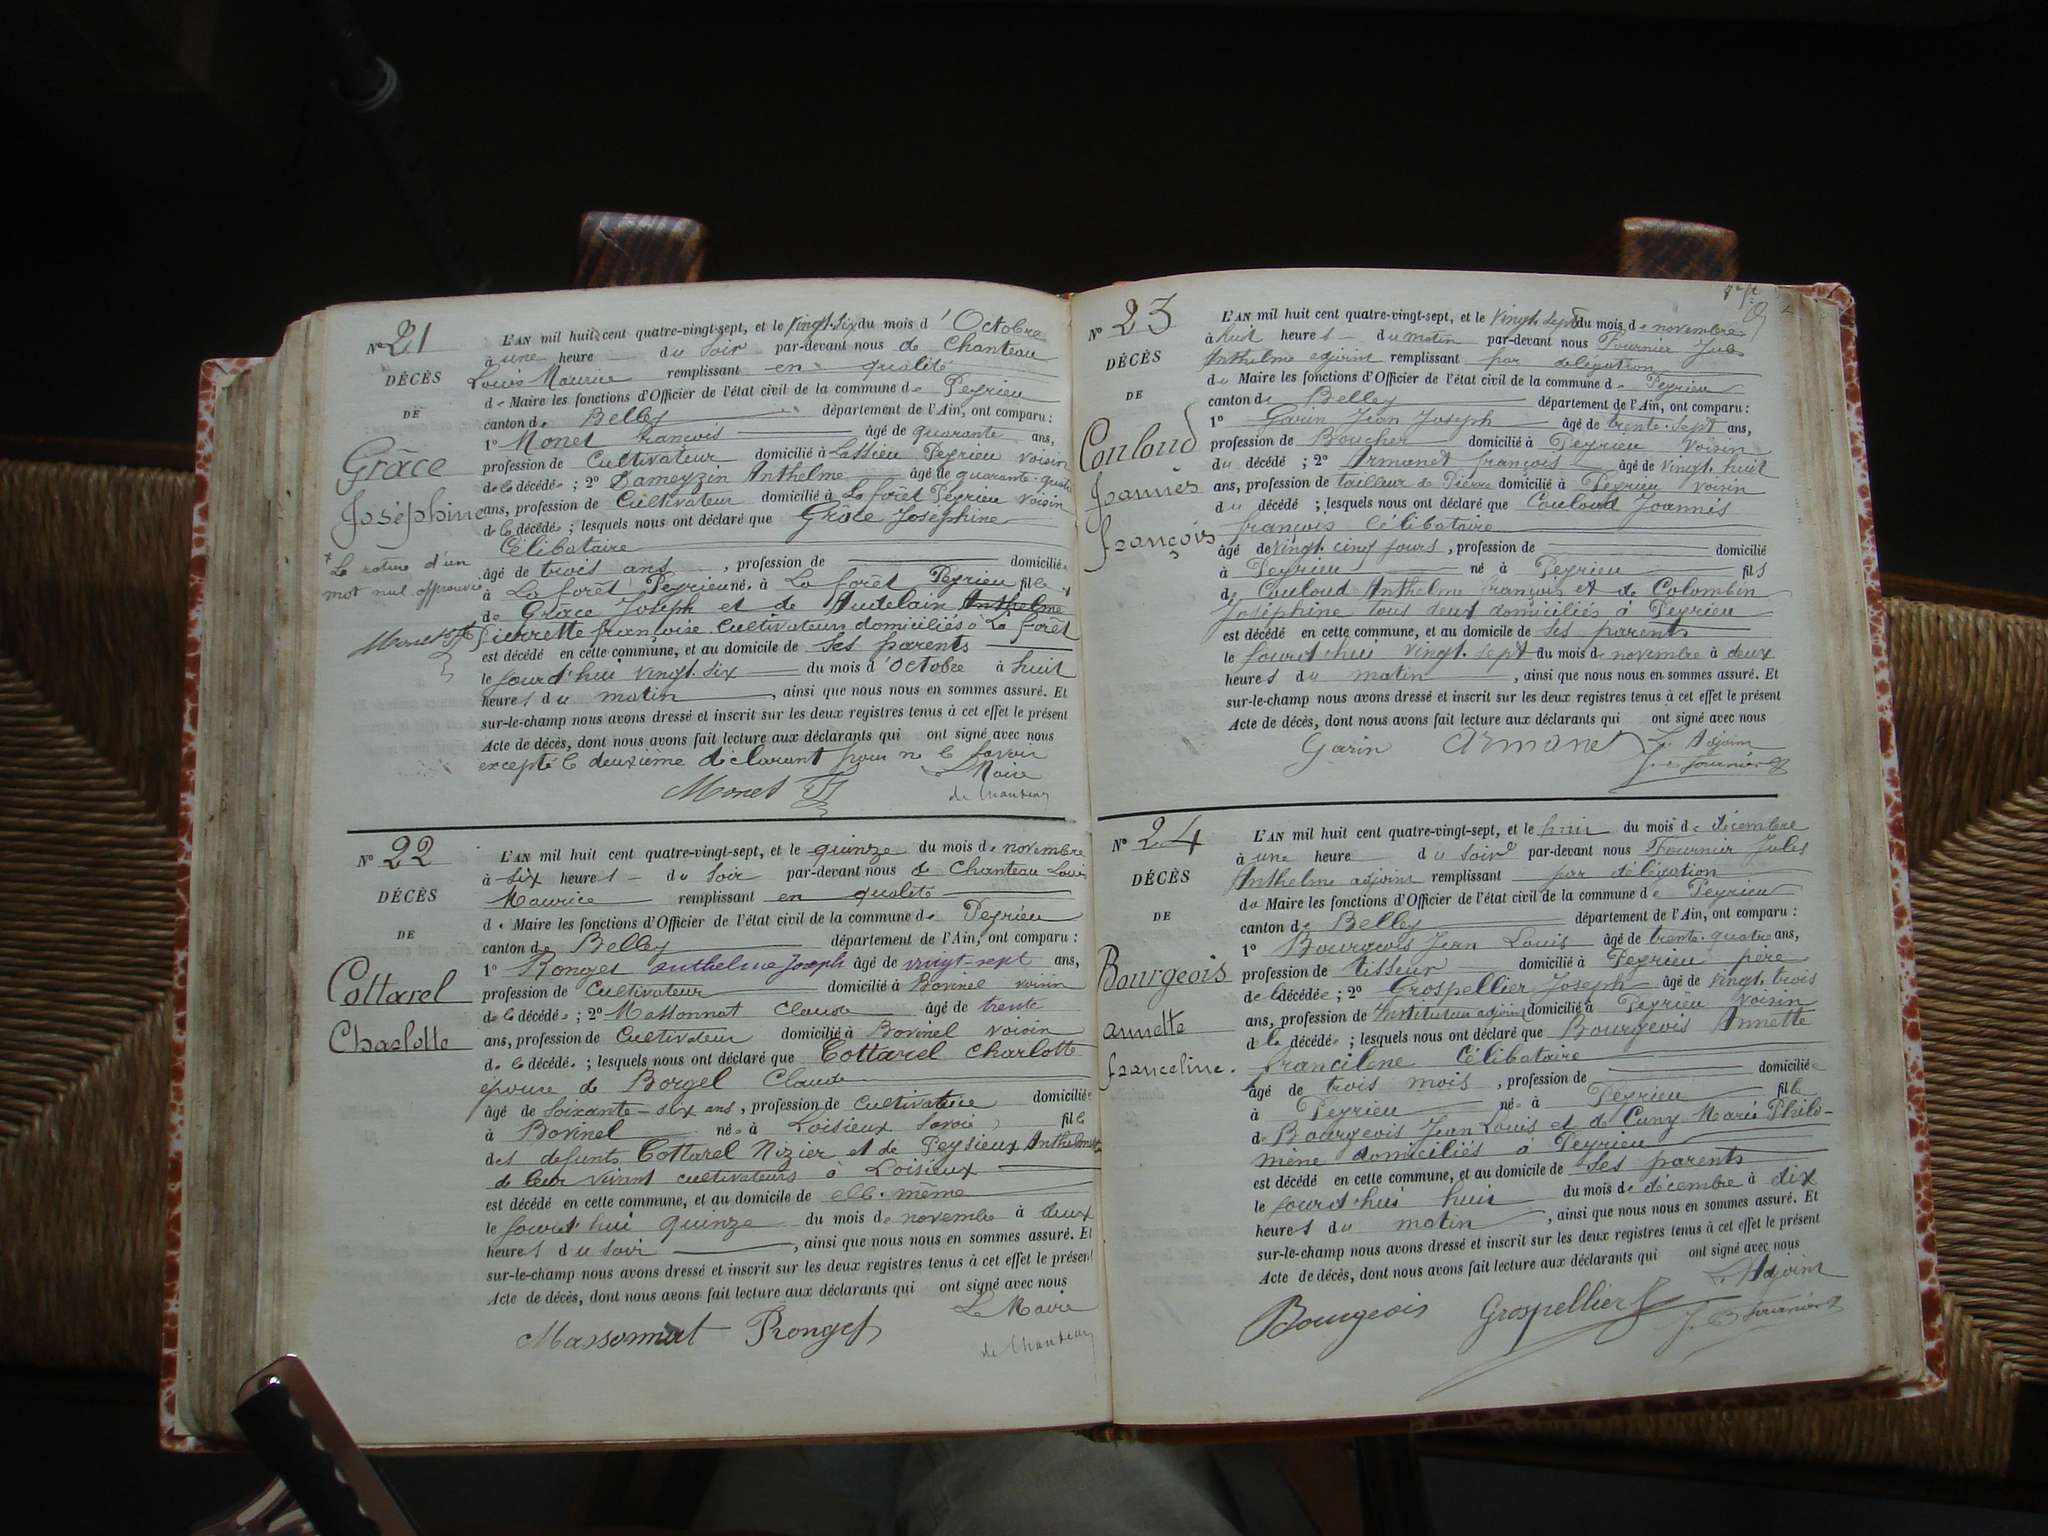 N° 21
DÉCÈS
DE
Grâce
Joséphine
* La rature d'un
mot nul approuvée
Monet
L'AN mil huit cent quatre-vingt-sept, et le vingt-six du mois d'Octobre
à une heure du soir par-devant nous de Chanteau
Louis Maurice remplissant en qualité
de Maire les fonctions d'Officier de l'état civil de la commune de Peyrieu
canton de Belley département de l'Ain, ont comparu :
1° Monet françois âgé de quarante ans,
profession de Cultivateur domicilié à Lassieu Peyrieu voisin
de la décédée ; 2° Dameyzin Anthelme âgé de quarante-quatre
ans, profession de Cultivateur domicilié à La forêt Peyrieu voisin
de la décédée ; lesquels nous ont déclaré que Grâce Joséphine
Célibataire
âgé de trois ans, profession de domiciliée
à La forêt Peyrieu née à La forêt Peyrieu fille
de Grâce Joseph et de Audelain Anthelme
pierrette françoise cultivateurs domiciliés à La forêt
est décédé en cette commune, et au domicile de ses parents
le jourd'hui vingt-six du mois d'Octobre à huit
heures du matin, ainsi que nous nous en sommes assuré. Et
sur-le-champ nous avons dressé et inscrit sur les deux registres tenus à cet effet le présent
Acte de décès, dont nous avons fait lecture aux déclarants qui ont signé avec nous
excepté le deuxième déclarant pour ne le savoir
Le Maire
Monet de Chanteau
N° 22
DÉCÈS
DE
Cottarel
Charlotte
L'AN mil huit cent quatre-vingt-sept, et le quinze du mois de novembre
à six heures du soir par-devant nous de Chanteau Louis
Maurice remplissant en qualité
de Maire les fonctions d'Officier de l'état civil de la commune de Peyrieu
canton de Belley département de l'Ain, ont comparu :
1° Ronget anthelme Joseph âgé de vingt-sept ans,
profession de Cultivateur domicilié à Bovinel voisin
de la décédée ; 2° Massonnat Claude âgé de trente
ans, profession de Cultivateur domicilié à Bovinel voisin
de la décédée ; lesquels nous ont déclaré que Cottarel Charlotte
épouse de Borgel Claude
âgé de soixante-six ans, profession de cultivatrice domiciliée
à Bovinel née à Loisieux Savoie fille
des défunts Cottarel Nizier et de Peysieux Anthelmette
de leur vivant cultivateurs à Loisieux
est décédé en cette commune, et au domicile de elle-même
le jourd'hui quinze du mois de novembre à deux
heures du soir, ainsi que nous nous en sommes assuré. Et
sur-le-champ nous avons dressé et inscrit sur les deux registres tenus à cet effet le présent
Acte de décès, dont nous avons fait lecture aux déclarants qui ont signé avec nous
Le Maire
Massonnat Ronget de Chanteau
N° 23
DÉCÈS
DE
Couloud
Joannès
françois
L'AN mil huit cent quatre-vingt-sept, et le vingt-sept du mois de novembre
à huit heures du matin par-devant nous Fournier Jules
Anthelme adjoint remplissant par délégation
du Maire les fonctions d'Officier de l'état civil de la commune de Peyrieu
canton de Belley département de l'Ain, ont comparu :
1° Garin Jean Joseph âgé de trente-sept ans,
profession de Boucher domicilié à Peyrieu voisin
du décédé ; 2° Armanet françois âgé de vingt-huit
ans, profession de tailleur de Pierre domicilié à Peyrieu voisin
du décédé ; lesquels nous ont déclaré que Couloud Joannès
françois Célibataire
âgé de vingt-cinq jours, profession de domicilié
à Peyrieu né à Peyrieu fils
de Couloud Anthelme françois et de Colombin
Joséphine tous deux domiciliés à Peyrieu
est décédé en cette commune, et au domicile de ses parents
le jourd'hui vingt-sept du mois de novembre à deux
heures du matin, ainsi que nous nous en sommes assuré. Et
sur-le-champ nous avons dressé et inscrit sur les deux registres tenus à cet effet le présent
Acte de décès, dont nous avons fait lecture aux déclarants qui ont signé avec nous
Garin Armanet L'Adjoint
Fournier
N° 24
DÉCÈS
DE
Bourgeois
annette
franceline.
L'AN mil huit cent quatre-vingt-sept, et le huit du mois de décembre
à une heure du soir par-devant nous Fournier Jules
Anthelme adjoint remplissant par délégation
du Maire les fonctions d'Officier de l'état civil de la commune de Peyrieu
canton de Belley département de l'Ain, ont comparu :
1° Bourgeois Jean Louis âgé de trente-quatre ans,
profession de tisseur domicilié à Peyrieu père
de la décédée ; 2° Grospellier Joseph âgé de vingt-trois
ans, profession de Instituteur adjoint domicilié à Peyrieu voisin
de la décédée ; lesquels nous ont déclaré que Bourgeois Annette
francilene Célibataire
âgé de trois mois, profession de domiciliée
à Peyrieu née à Peyrieu fille
de Bourgeois Jean Louis et de Cuny Marie Philo-
mène domiciliés à Peyrieu
est décédé en cette commune, et au domicile de ses parents
le jourd'hui huit du mois de décembre à dix
heures du matin, ainsi que nous nous en sommes assuré. Et
sur-le-champ nous avons dressé et inscrit sur les deux registres tenus à cet effet le présent
Acte de décès, dont nous avons fait lecture aux déclarants qui ont signé avec nous
L'Adjoint
Bourgeois Grospellier J. Fournier